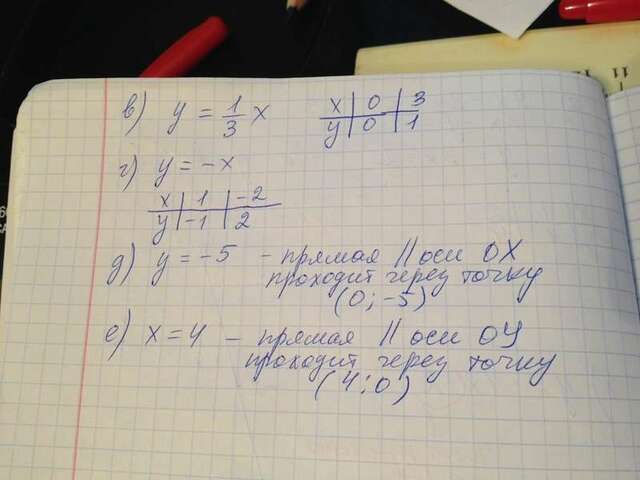 в) y = 1/3 x
x | 0 | 3
y | 0 | 1
г) y = -x
x | 1 | -2
y | -1 | 2
д) y = -5 - прямая || оси OX
проходит через точку
(0; -5)
е) x = 4 - прямая || оси ОУ
проходит через точку
(4; 0)
11